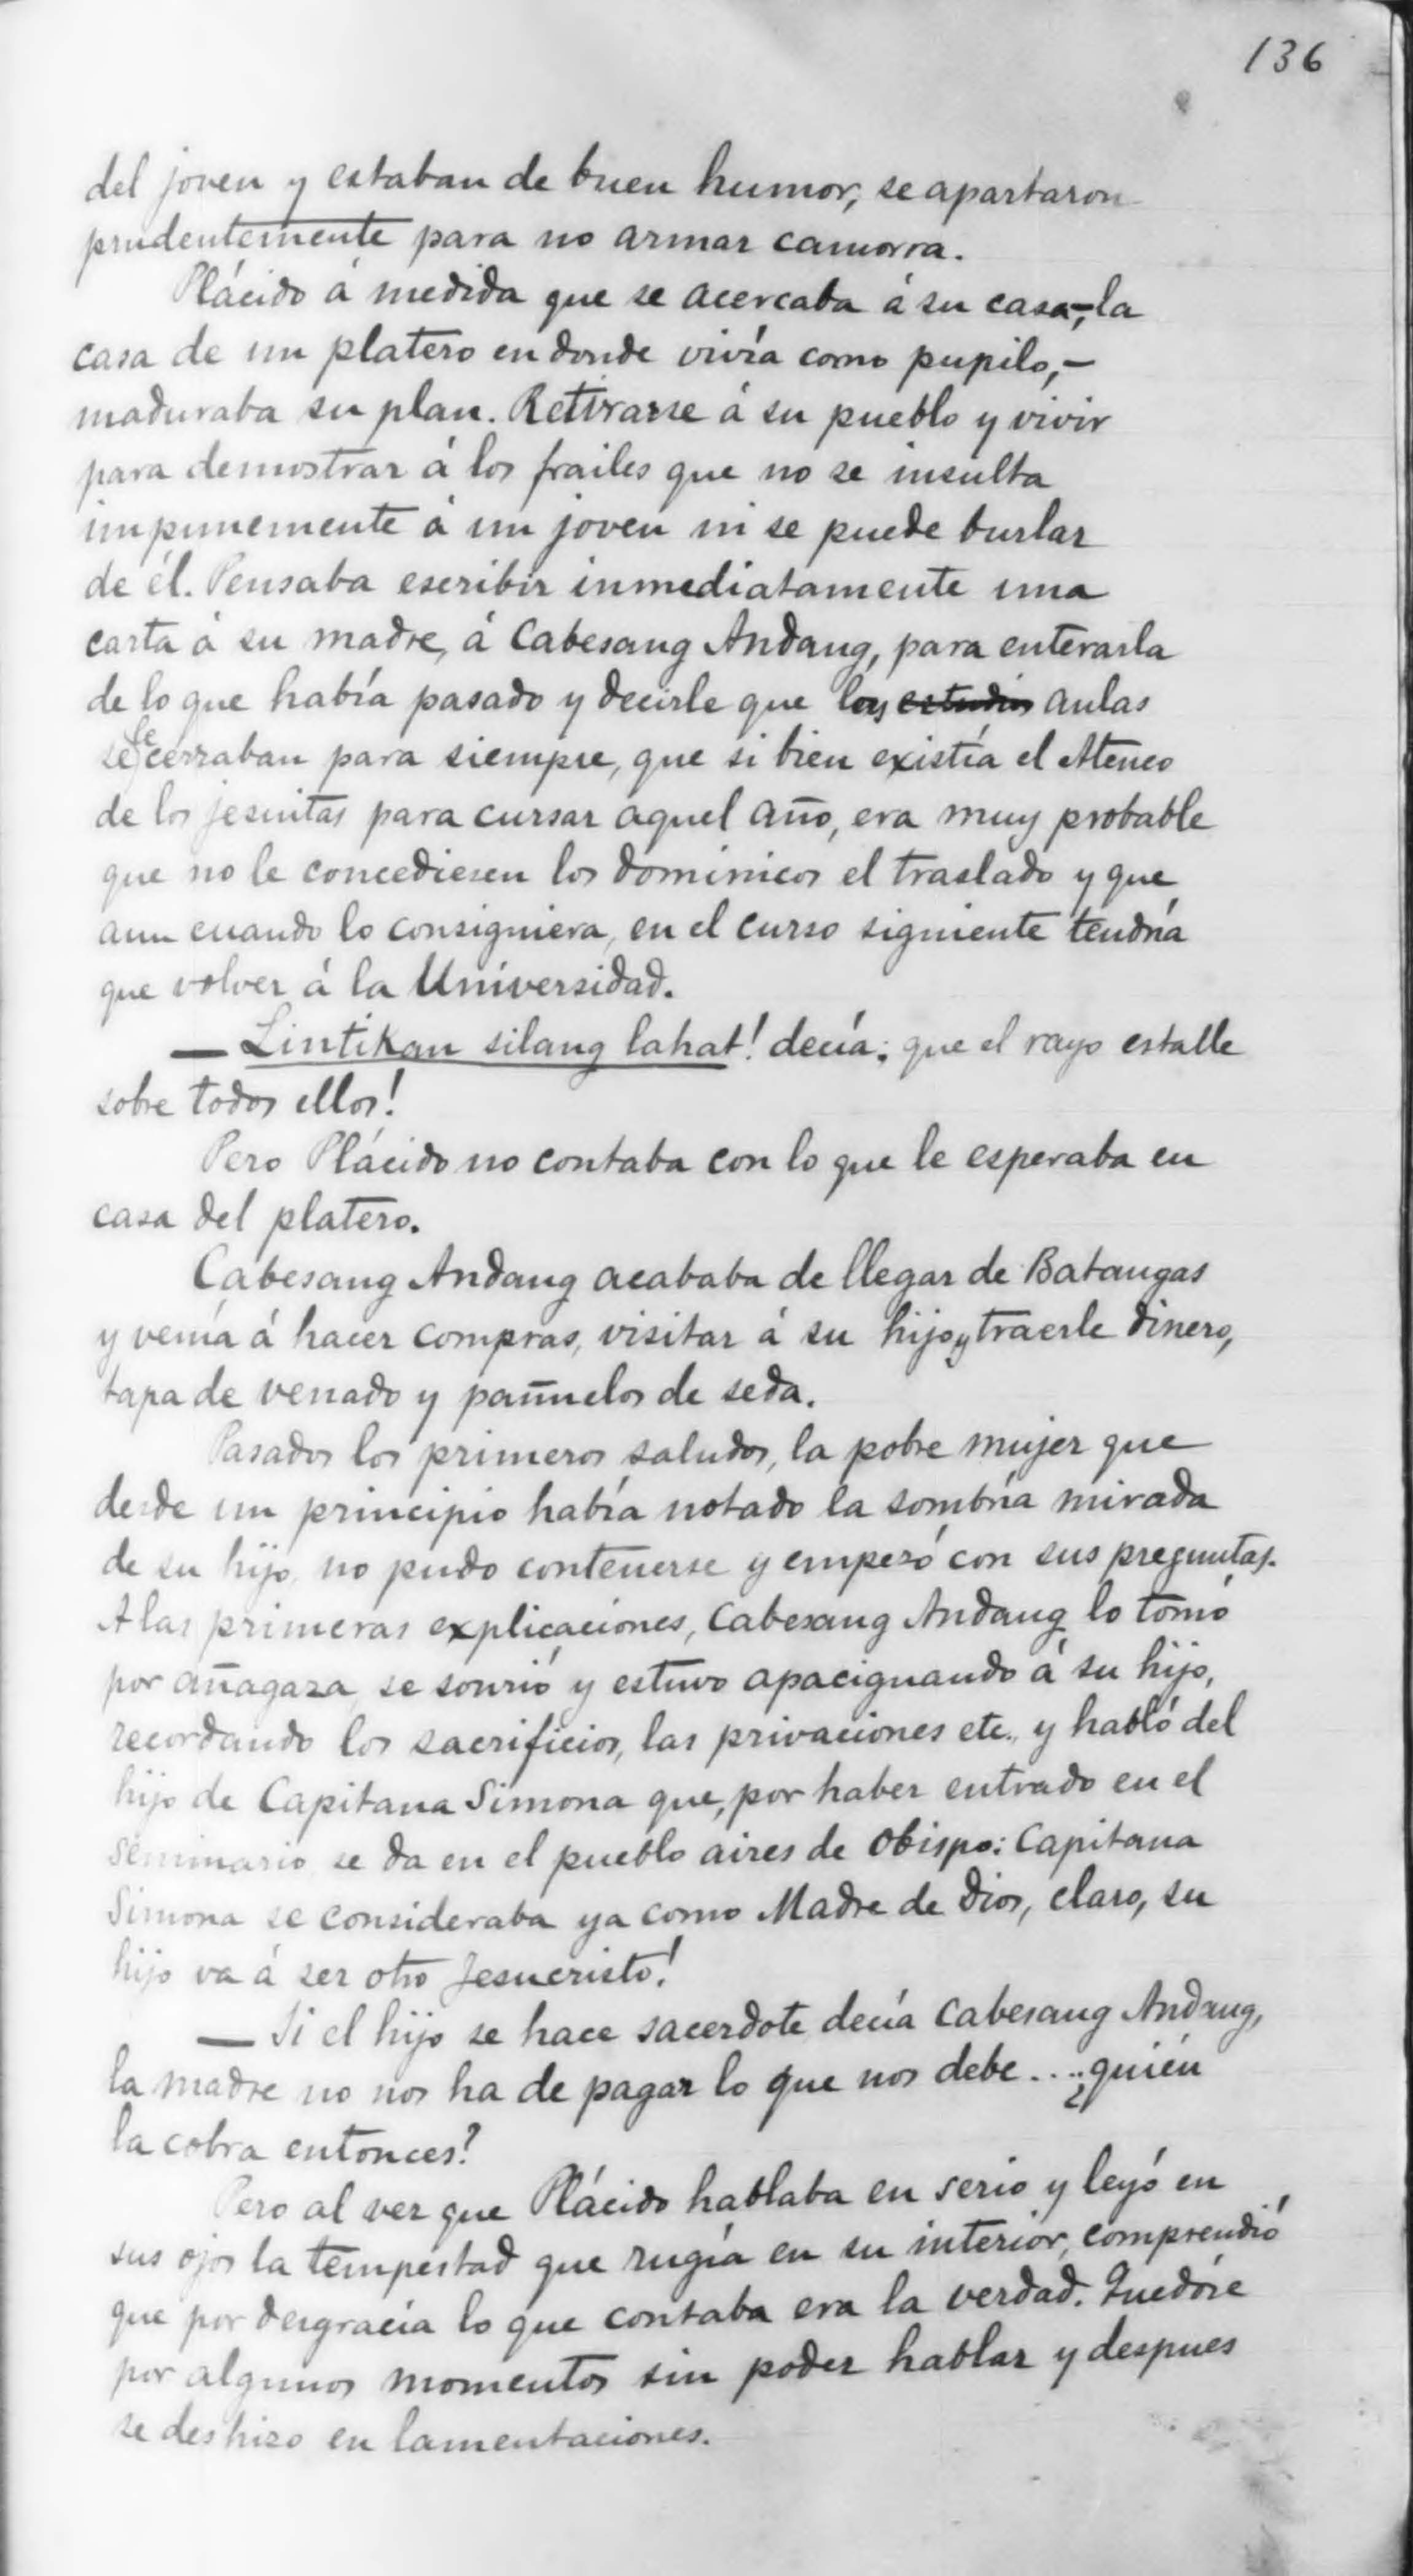 136
del joven y estaban de buen humor, se apartaron
prudentemente para no armar camorra.
Plácido á medida que se acercaba á su casa,-la
casa de un platero en donde vivía como pupilo,-
maduraba su plan. Retirarse á su pueblo y vivir
para demostrar á los frailes que no se insulta
impunemente á un joven ni se puede burlar
de él. Pensaba escribir inmediatamente una
carta á su madre, á Cabesang Andang, para enterarla
de lo que había pasado y decirle que las estudios aulas
se le cerraban para siempre, que si bien existía el Ateneo
de los jesuitas para cursar aquel año, era muy probable
que no le concediesen los dominicos el traslado y que
aun cuando lo consiguiera, en el curso siguiente tendría
que volver á la Universidad.
— Lintikan silang lahat! decía; que el rayo estalle
sobre todos ellos!
Pero Plácido no contaba con lo que le esperaba en
casa del platero.
Cabesang Andang acababa de llegar de Batangas
y venía á hacer compras, visitar á su hijo y traerle dinero,
tapa de venado y pañuelos de seda.
Pasados los primeros saludos, la pobre mujer que
desde un principio había notado la sombría mirada
de su hijo, no pudo contenerse y empezó con sus preguntas.
A las primeras explicaciones, Cabesang Andang lo tomó
por añagaza, se sonrió y estuvo apaciguando á su hijo,
recordando los sacrificios, las privaciones etc., y habló del
hijo de Capitana Simona que, por haber entrado en el
Seminario, se da en el pueblo aires de Obispo: Capitana
Simona se consideraba ya como Madre de Dios, claro, su
hijo va á ser otro Jesucristo!
— Si el hijo se hace sacerdote, decía Cabesang Andang,
la madre no nos ha de pagar lo que nos debe.... ¿quién
la cobra entonces?
Pero al ver que Plácido hablaba en serio y leyó en
sus ojos la tempestad que rugía en su interior, comprendió
que por desgracia lo que contaba era la verdad. Quedóse
por algunos momentos sin poder hablar y despues
se deshizo en lamentaciones.